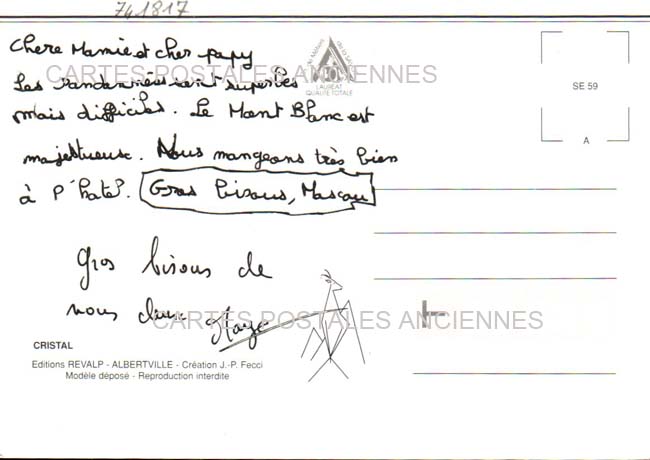 741817
Chere Mamie et cher papy
Les randonnées sont superbes
mais difficiles. Le Mont Blanc est
majestueuse. Nous mangeons très bien
à l'hotel. Gros bisous,
Gros bisous de
nous deux
CARTES POSTALES ANCIENNES
LAURÉAT
QUALITÉ TOTALE
SE 59
A
CARTES POSTALES ANCIENNES
CRISTAL
Editions REVALP - ALBERTVILLE - Création J.-P. Fecci
Modèle déposé - Reproduction interdite